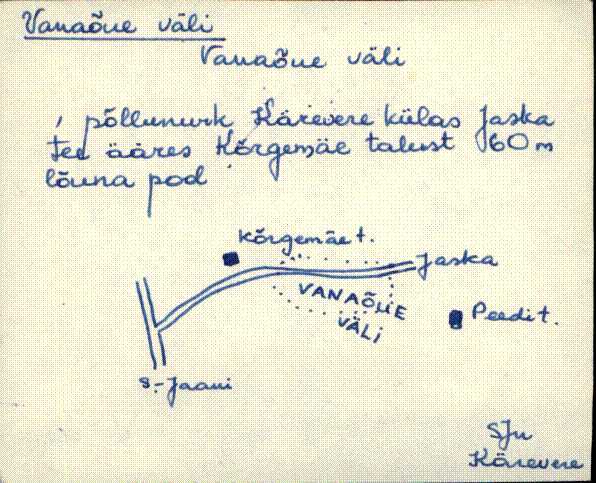 Vanaõue väli
Vanaõue väli
, põllunurk Kärevere külas Jaska
tee ääres Kõrgemäe talust 60 m
lõuna pool
Kõrgemäe t.
Jaska
VANAÕUE
VÄLI
Peedi t.
S.-Jaani
SJn
Kärevere